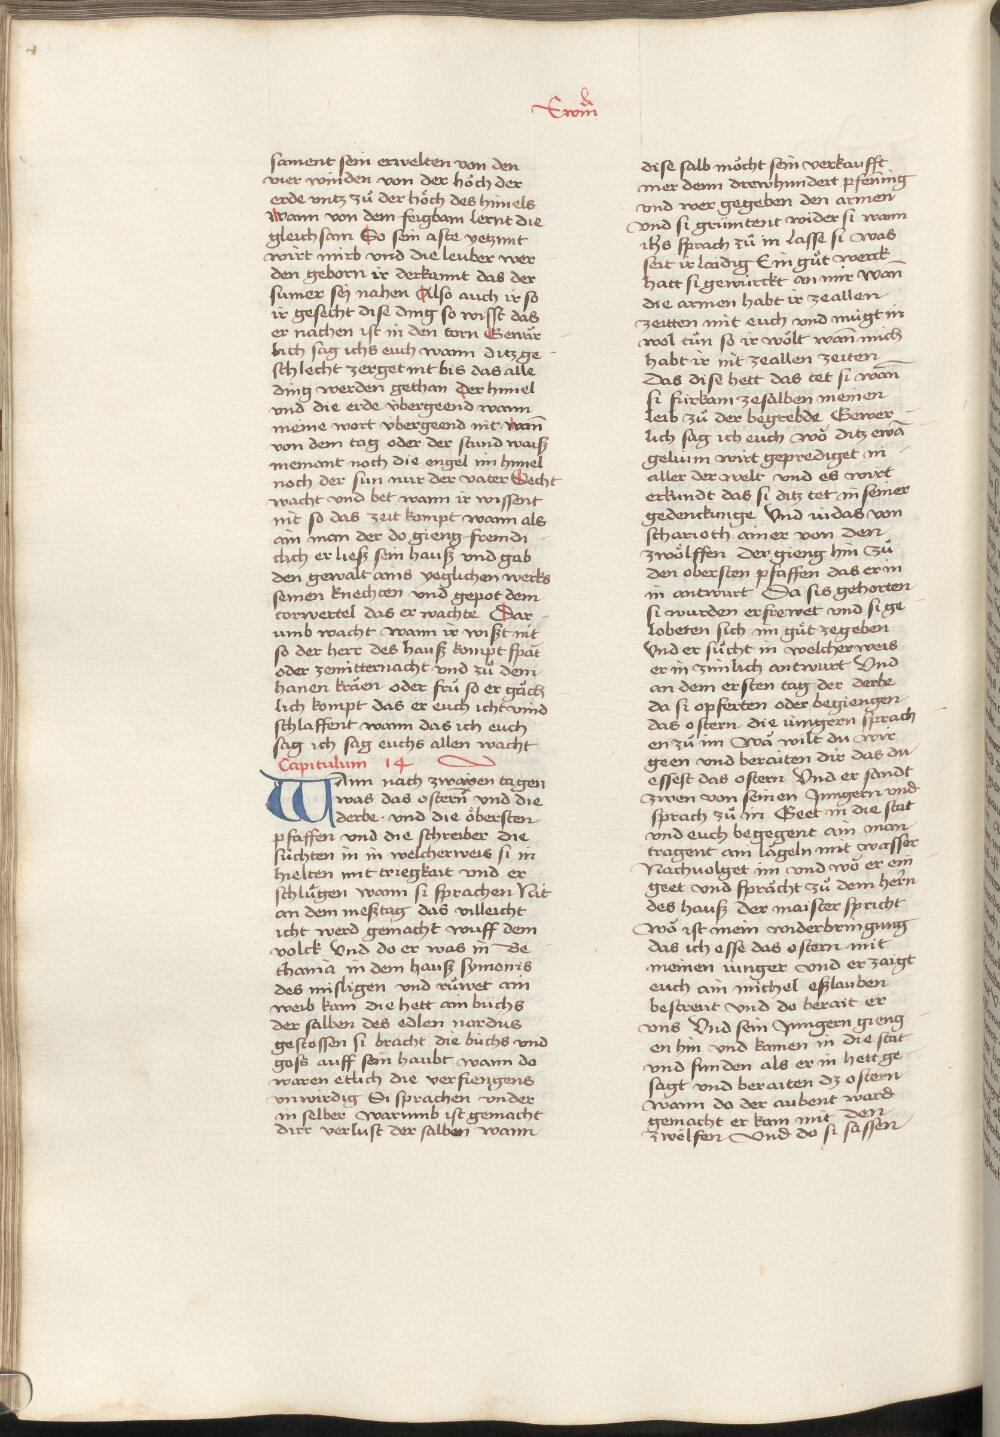 Ewm̅
sament sein erwelten von den
vier winden von der höch der
erde vntz zů der höch des himels
Wann von dem feigbam lernt die
gleichsam So sein aste yetzunt
wirt mirb vnd die leuber wer
den geborn ir derkannt das der
sumer sey nahen Also auch ir so
ir gesecht dise ding so wisst das
er nachen ist in den torn Gewär
lich sag ichs euch wann ditz ge
schlecht zerget nit bis das alle
ding werden gethan Der himel
vnd die erde v̈bergeend wann
meine wort v̈bergeend nit wañ
von dem tag oder der stund waiß
niemant noch die engel im himel
noch der sun nur der vater Secht
wacht vnd bet wann ir wissent
nit so das zeit kompt wann als
ain man der do gieng fremdi
clich er ließ sein hauß vnd gab
den gewalt ains yeglichen wercks
seinen knechten vnd gepot dem
torwertel das er wachte Dar
umb wacht wann ir wißt nit
so der herr des hauß kompt spat
oder ze mitternacht vnd zů dem
hanen kräen oder frů so er gäch
lich kompt das er euch icht vind
schlaffent wann das ich euch
sag ich sag euchs allen wacht
Capitulum 14
Wann nach zwayen tagen
was das ostern vnd die
derbe vnd die öbersten
pfaffen vnd die schreiber die
sůchten in in welcherweis si in
hielten mit triegkait vnd er
schlůgen wann si sprachen Nit
an dem meßtag das villeicht
icht werd gemacht wuff dem
volck Vnd do er was in Be
thania in dem hauß symonis
des misligen vnd růwet ain
weib kam die hett ain buchs
der salben des edlen nardus
gestossen si bracht die buchs vnd
goss auff sein haubt wann do
waren etlich die verfiengens
vnwirdig Si sprachen vnder
in selber warumb ist gemacht
dirr verlust der salben wann
dise salb möcht sein verkaufft
mer denn drewhundert pfenning
vnd wer gegeben den armen
vnd si grümtent wider si wann
ihs sprach zů in Lasse si was
seit ir laidig Ein gůt werck
hatt si gewürckt an mir wañ
die armen habt ir ze allen
zeitten mit euch vnd mügt in
wol tůn so ir wölt wañ mich
habt ir nit ze allen zeiten
Das dise hett das tet si wañ
si fürkam ze salben meinen
leib zů der begrebde Gewer
lich sag ich euch wo ditz ewā
gelium wirt geprediget in
aller der welt vnd es wirt
erkundt das si ditz tet in seiner
gedenckunge Vnd iudas von
scharioth ainer von den
zwölffen der gieng hin zů
den obersten pfaffen das er in
in antwurt Da sis gehorten
si wurden erfrewet vnd si ge
lobeten sich im gůt zegeben
Vnd er sůcht in welcherweis
er in zimlich antwurt Vnd
an dem ersten tag der derbe
da si opferten oder begiengen
das ostern die iungern sprach
en zů im Wa wilt du wir
geen vnd beraiten dir das du
essest das ostern Vnd er sandt
zwen von seinen Jungern vnd
sprach zů in Geet in die stat
vnd euch begegent ain man
tragent ain lägeln mit wasser
Nachuolget im vnd wo er ein
geet vnd sprächt zů dem herrn
des hauß der maister spricht
Wo ist mein widerbringung
das ich esse das ostern mit
meinen iunger vnd er zaigt
euch ain michel eßlauben
bestreut vnd do berait er
vns Vnd sein Jungern gieng
en hin vnd kamen in die stat
vnd funden als er in hett ge
sagt vnd beraiten dz ostern
wann do der aubent ward
gemacht er kam mit den
zwelfen Vnd do si sassen